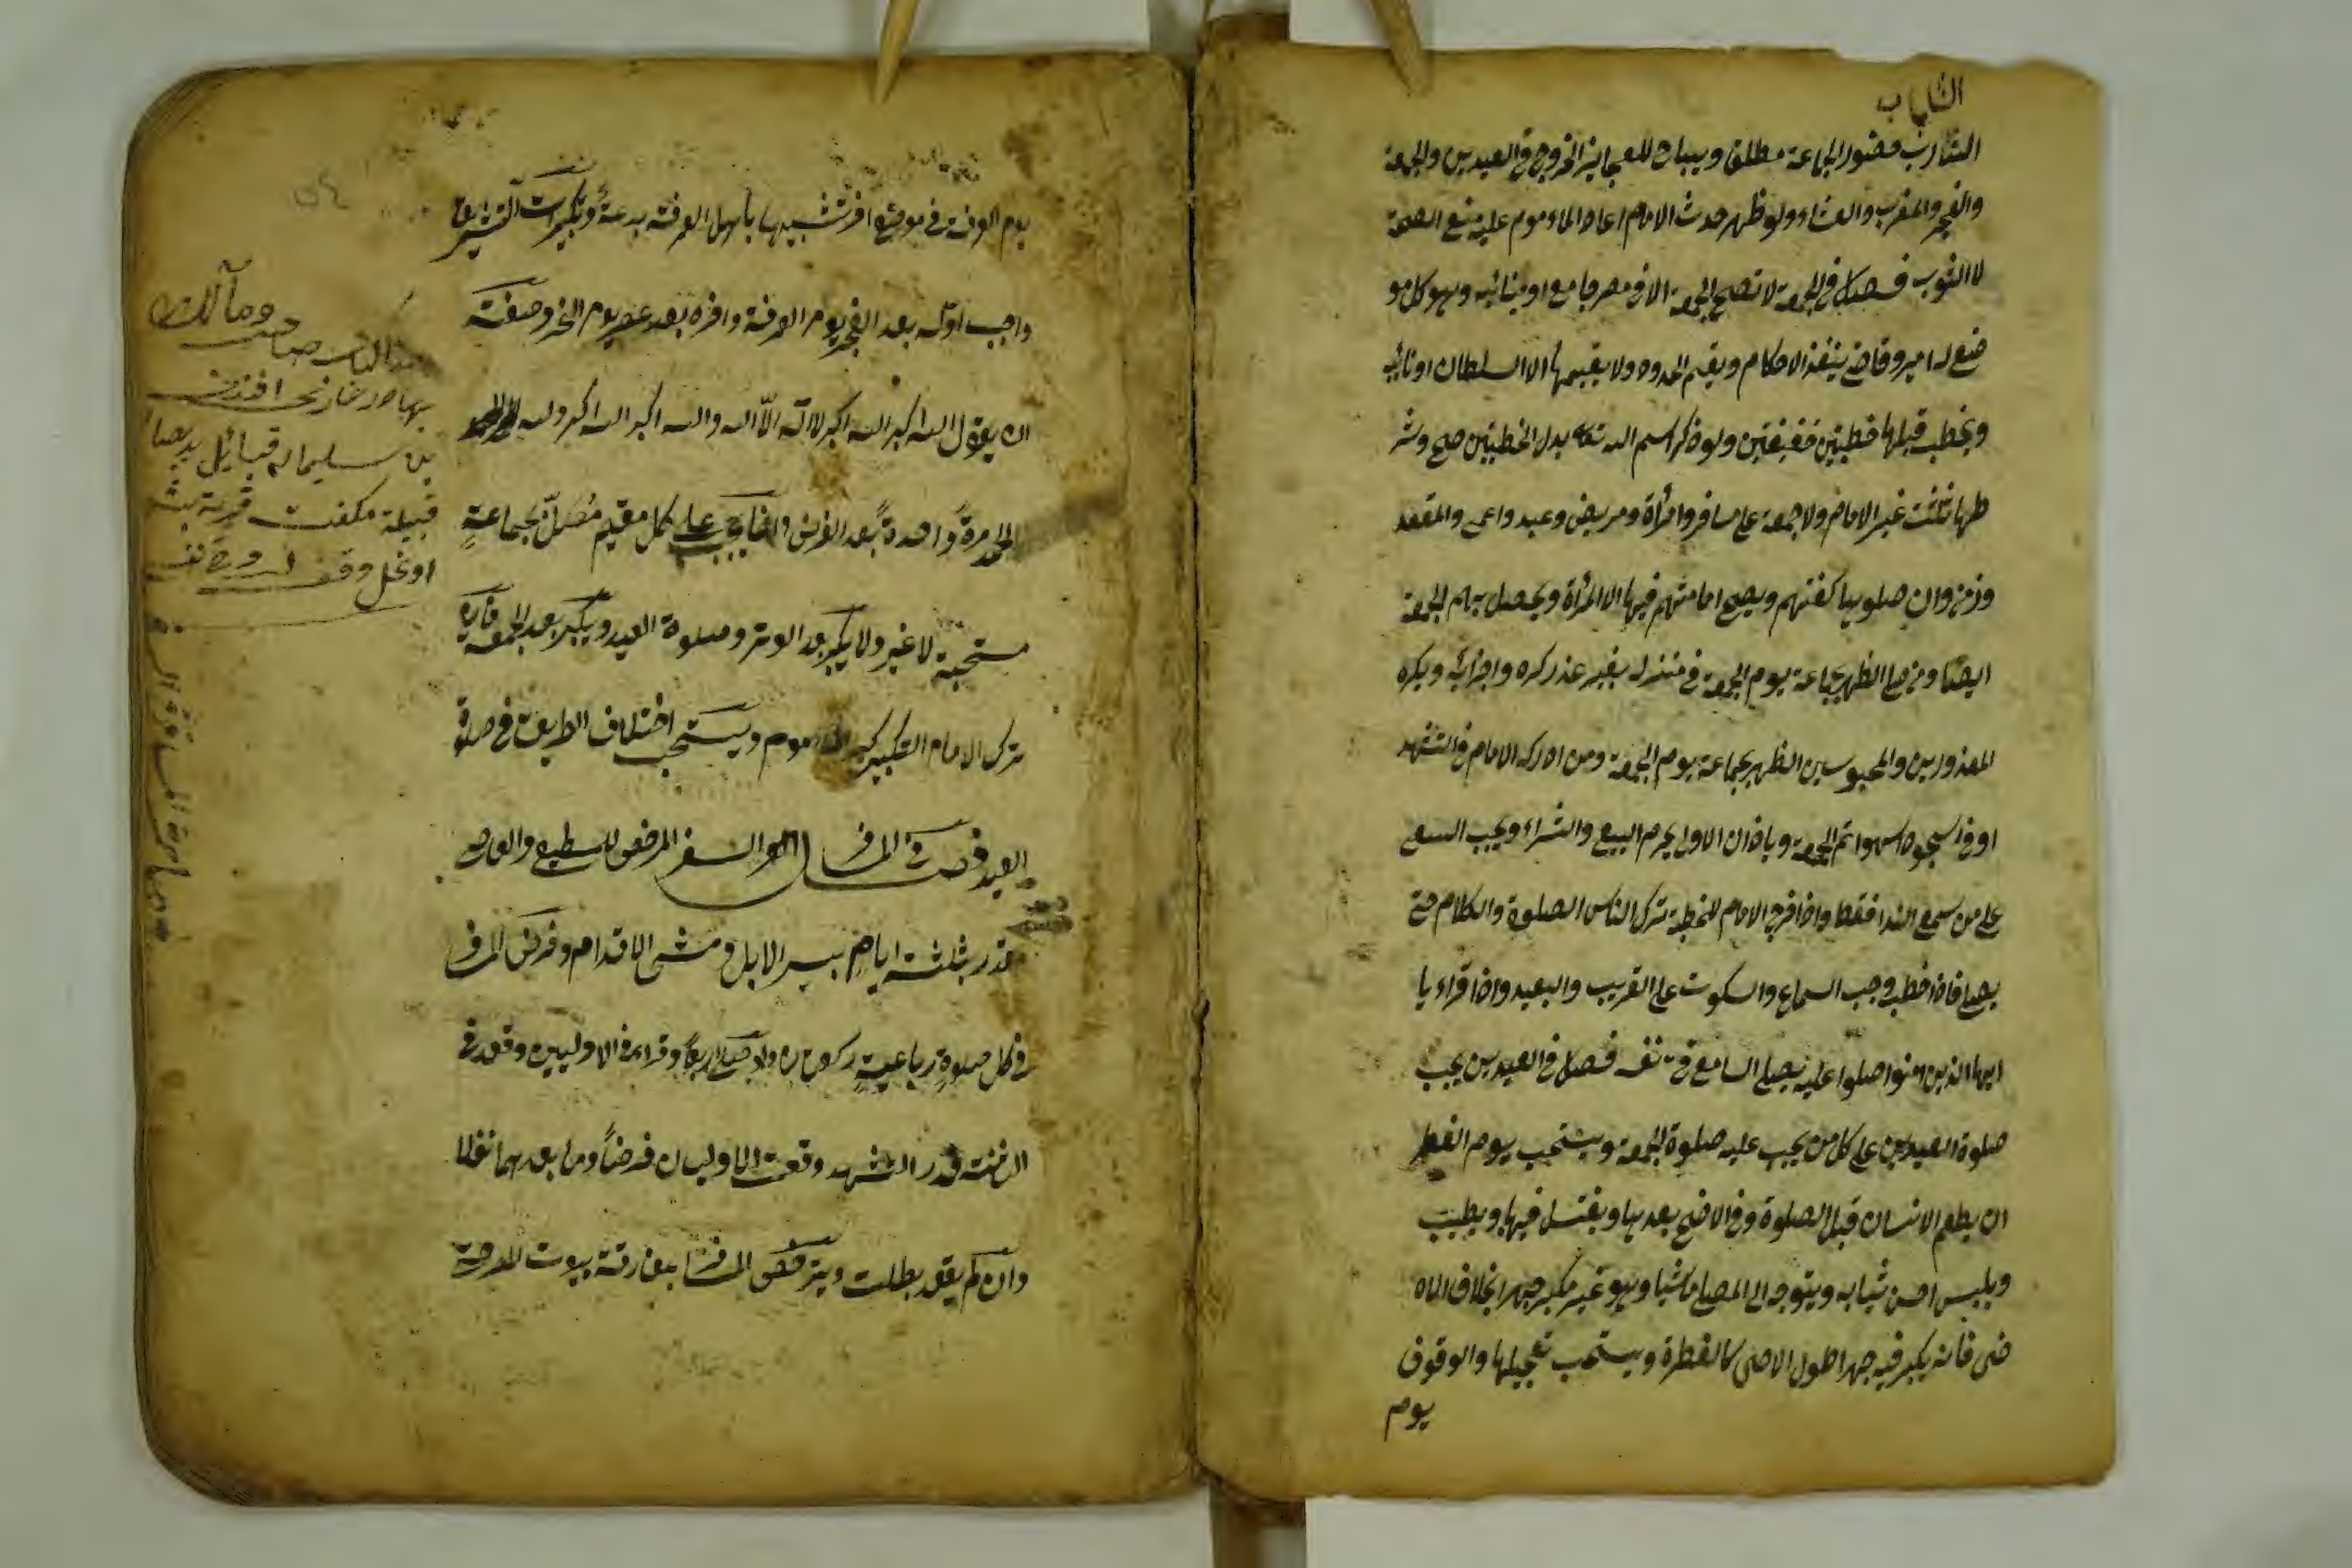 الشاب
الشارب حضور الجماعة مطلقا ويباح للعجائز الخروج في العيدين والجمعة
والفجر والمغرب والعشاء ولو ظهر حدث الامام اعاد المأموم عليه منع الصحة
لا الثوب فصل في الجمعة لا تصح الجمعة الا في مصر جامع او فنائه وهو كل مو
ضع له امير وقاض ينفذ الاحكام ويقيم الحدود ولا يقيمها الا السلطان او نائبه
ويخطب قبلها خطبتين خفيفتين ولو ذكر اسم الله تعالى بدل الخطبتين صح وشر
طها ثلثة غير الامام ولا جمعة على مسافر وامرأة ومريض وعبد واعمى والمقعد
وزمن وان صلوها كفتهم ويصح امامتهم فيها الا المرأة ويحصل بهم الجمعة
ايضا ومن صلى الظهر بجماعة يوم الجمعة في منزله بغير عذر كره واجزأه ويكره
للمعذورين والمحبوسين الظهر بجماعة يوم الجمعة ومن ادرك الامام في التشهد
او في سجود السهو اتم الجمعة وباذان الاول يحرم البيع والشراء ويجب السعي
على من سمع النداء فقط واذا خرج الامام للخطبة ترك الناس الصلوة والكلام حتى
يصلي فاذا خطب وجب السماع والسكوت على القريب والبعيد واذا قراء يا
ايها الذين امنوا صلوا عليه يصلي السامع في نفسه فصل في العيدين يجب
صلوة العيدين على كل من يجب عليه صلوة الجمعة ويستحب يوم الفطر
ان يطعم الانسان قبل الصلوة وفي الاضحى بعدها ويغتسل فيها ويطيب
ويلبس احسن ثيابه ويتوجه الى المصلى ماشيا وهو غير مكبر جهرا بخلاف الاه
ضحى فانه يكبر فيه جهرا طول الاضحى كالفطرة ويستحب تعجيلها والوقوف
يوم
يوم العرفة في موضع اخر تشبيها بأهل العرفة بدعة وتكبيرات التشريق
واجب اوله بعد الفجر يوم العرفة واخره بعد عصر يوم النحر وصفته
ان يقول الله اكبر الله اكبر لا اله الا الله والله اكبر الله اكبر ولله الحمد
الحمد مرة واحدة بعد الفرض وانما يجب على كل مقيم مصل بجماعة
مستحبة لا غير ولا يكبر بعد الوتر وصلوة العيد ويكبر بعد الجمعة فان
ترك الامام التكبير كبر المأموم ويستحب اختلاف الطريق في صلوة
العيد فصل في المسافر السفر المرخص للمطيع والعاصي
قدر بثلثة ايام بسير الابل ومشي الاقدام وفرض المسافر
في كل صلوة رباعية ركعتان ولو صلى اربعا وقراء في الاوليين وقعد في
الثانية قدر التشهد وقعت الاوليان فرضا وما بعدهما نفلا
وان لم يقعد بطلت ويترخص المسافر بمفارقة بيوت المدينة
٥٤
هذا الكتاب صاحب ومالك
بهادر افندي
بن سليمان قبائل
قبيلة مكفت قرية
اوغلى وقف